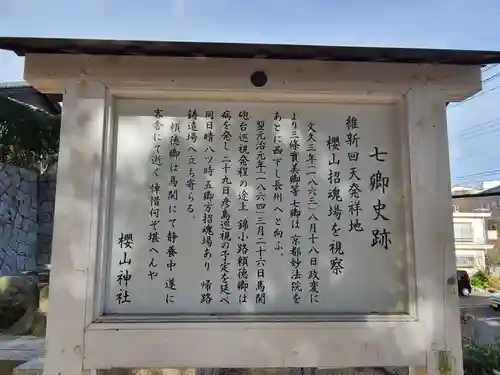 七卿史跡
維新回天発祥地
櫻山招魂場を視察
文久三年(一八六三)八月十八日政変に
より三條實美卿等七卿は、京都妙法院を
あとに西下し長州へと向ふ。
翌元治元年(一八六四)三月二十六日馬関
砲台巡視発程の途上、錦小路頼徳卿は
病を発し二十九日彦島巡視の予定を延べ
同日暗八ツ時五卿方招魂場あり 帰路
鋳造場へ立ち寄らる。
頼徳卿は馬関にて静養中 遂に
客舎にて逝く 悼惜何ぞ堪へんや
櫻山神社